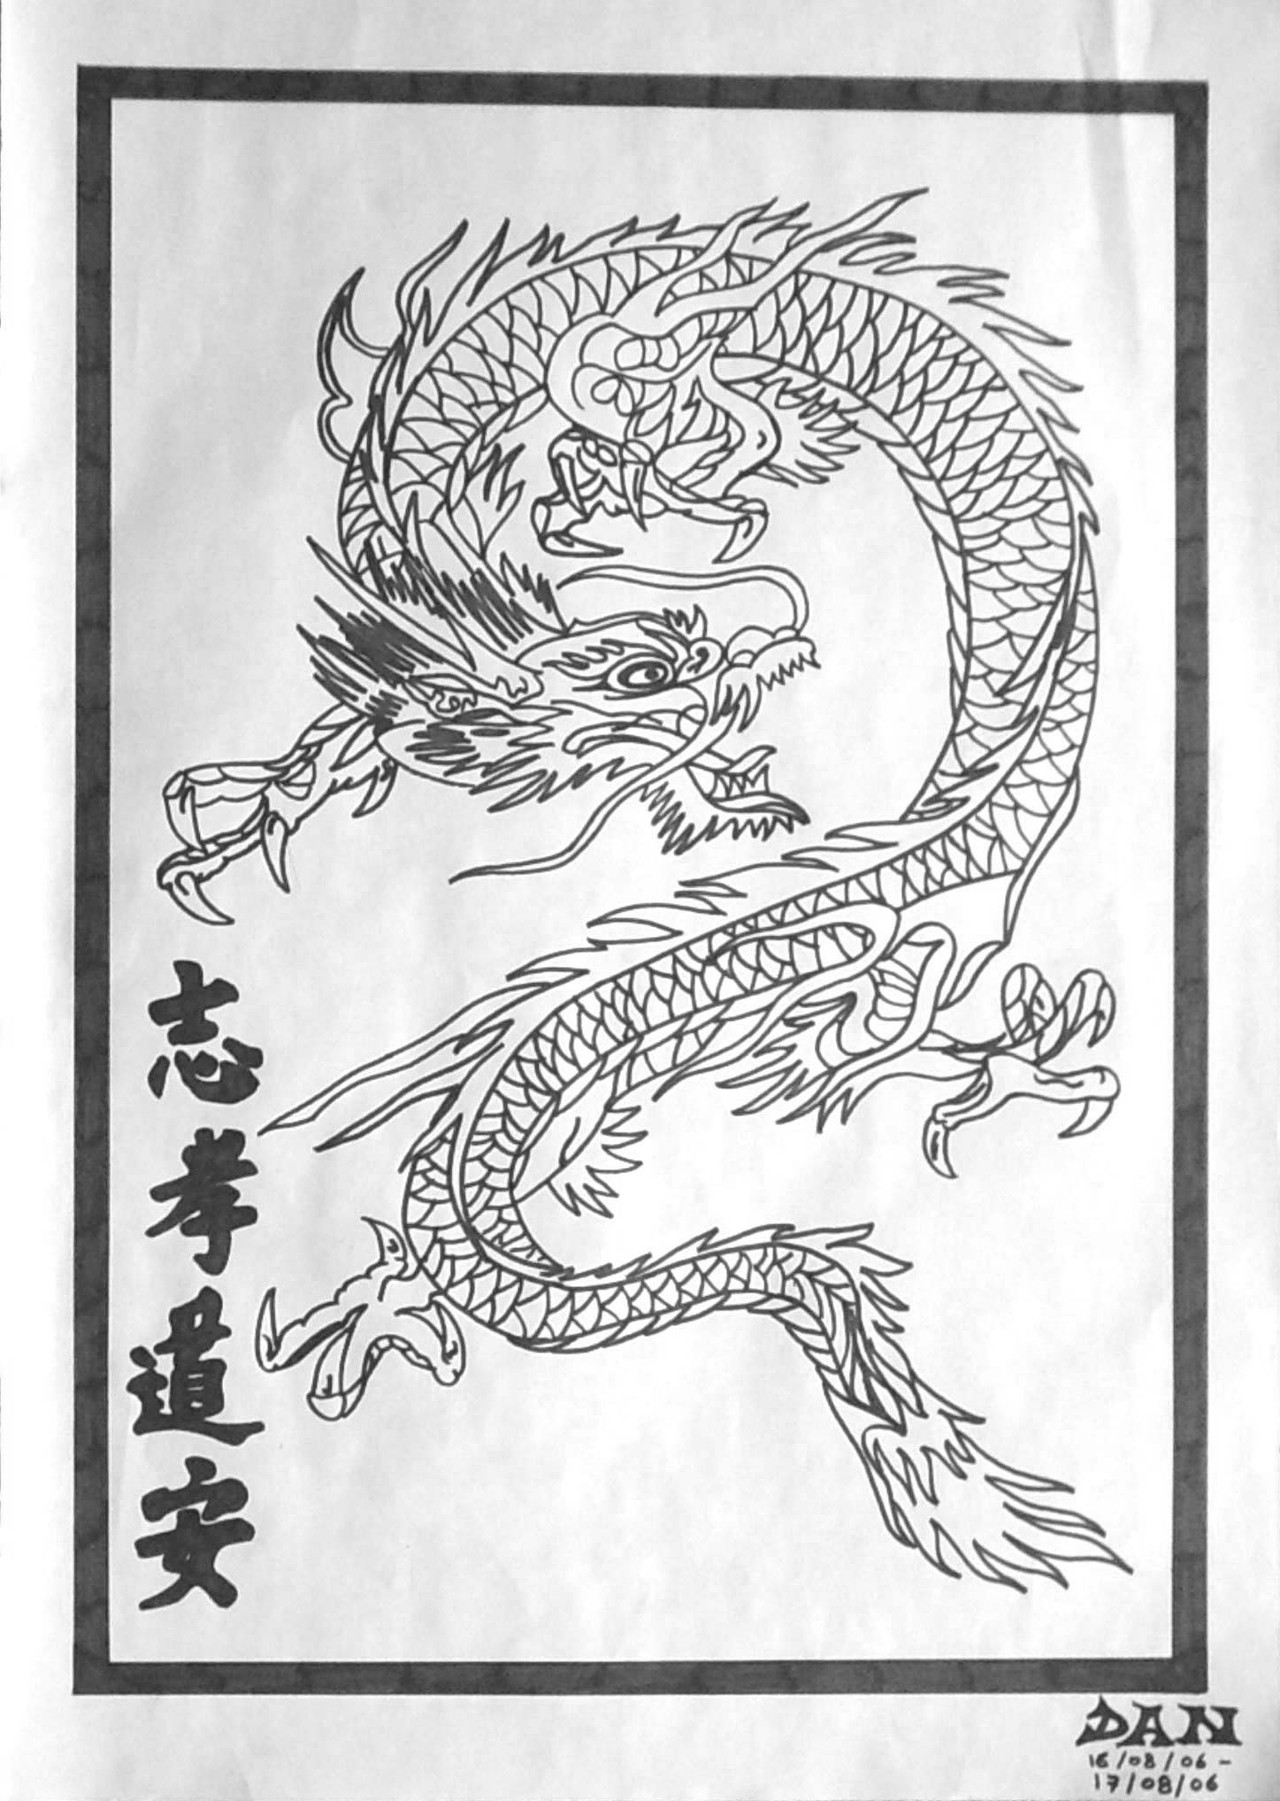 志孝道安
DAN
16/08/06-
17/08/06